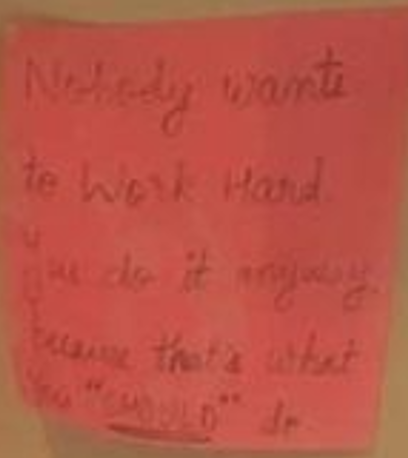 Nobody wants
to Work Hard.
You do it anyway.
because that's what
You "SHOULD" do